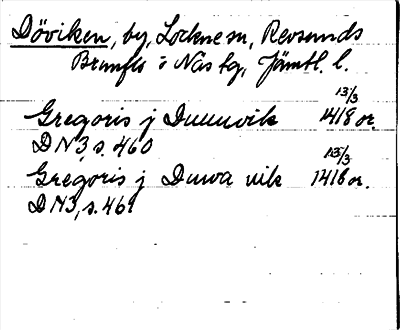 Döviken, by, Locknesn, Revsunds
Brunflo o Näs tg, Jämtl. l.
13/3
Gregoris j Duuuvik 1418 or.
DN 3, s. 460
13/3
Gregoris j Duwa uik 1418 or.
DN 3, s. 461